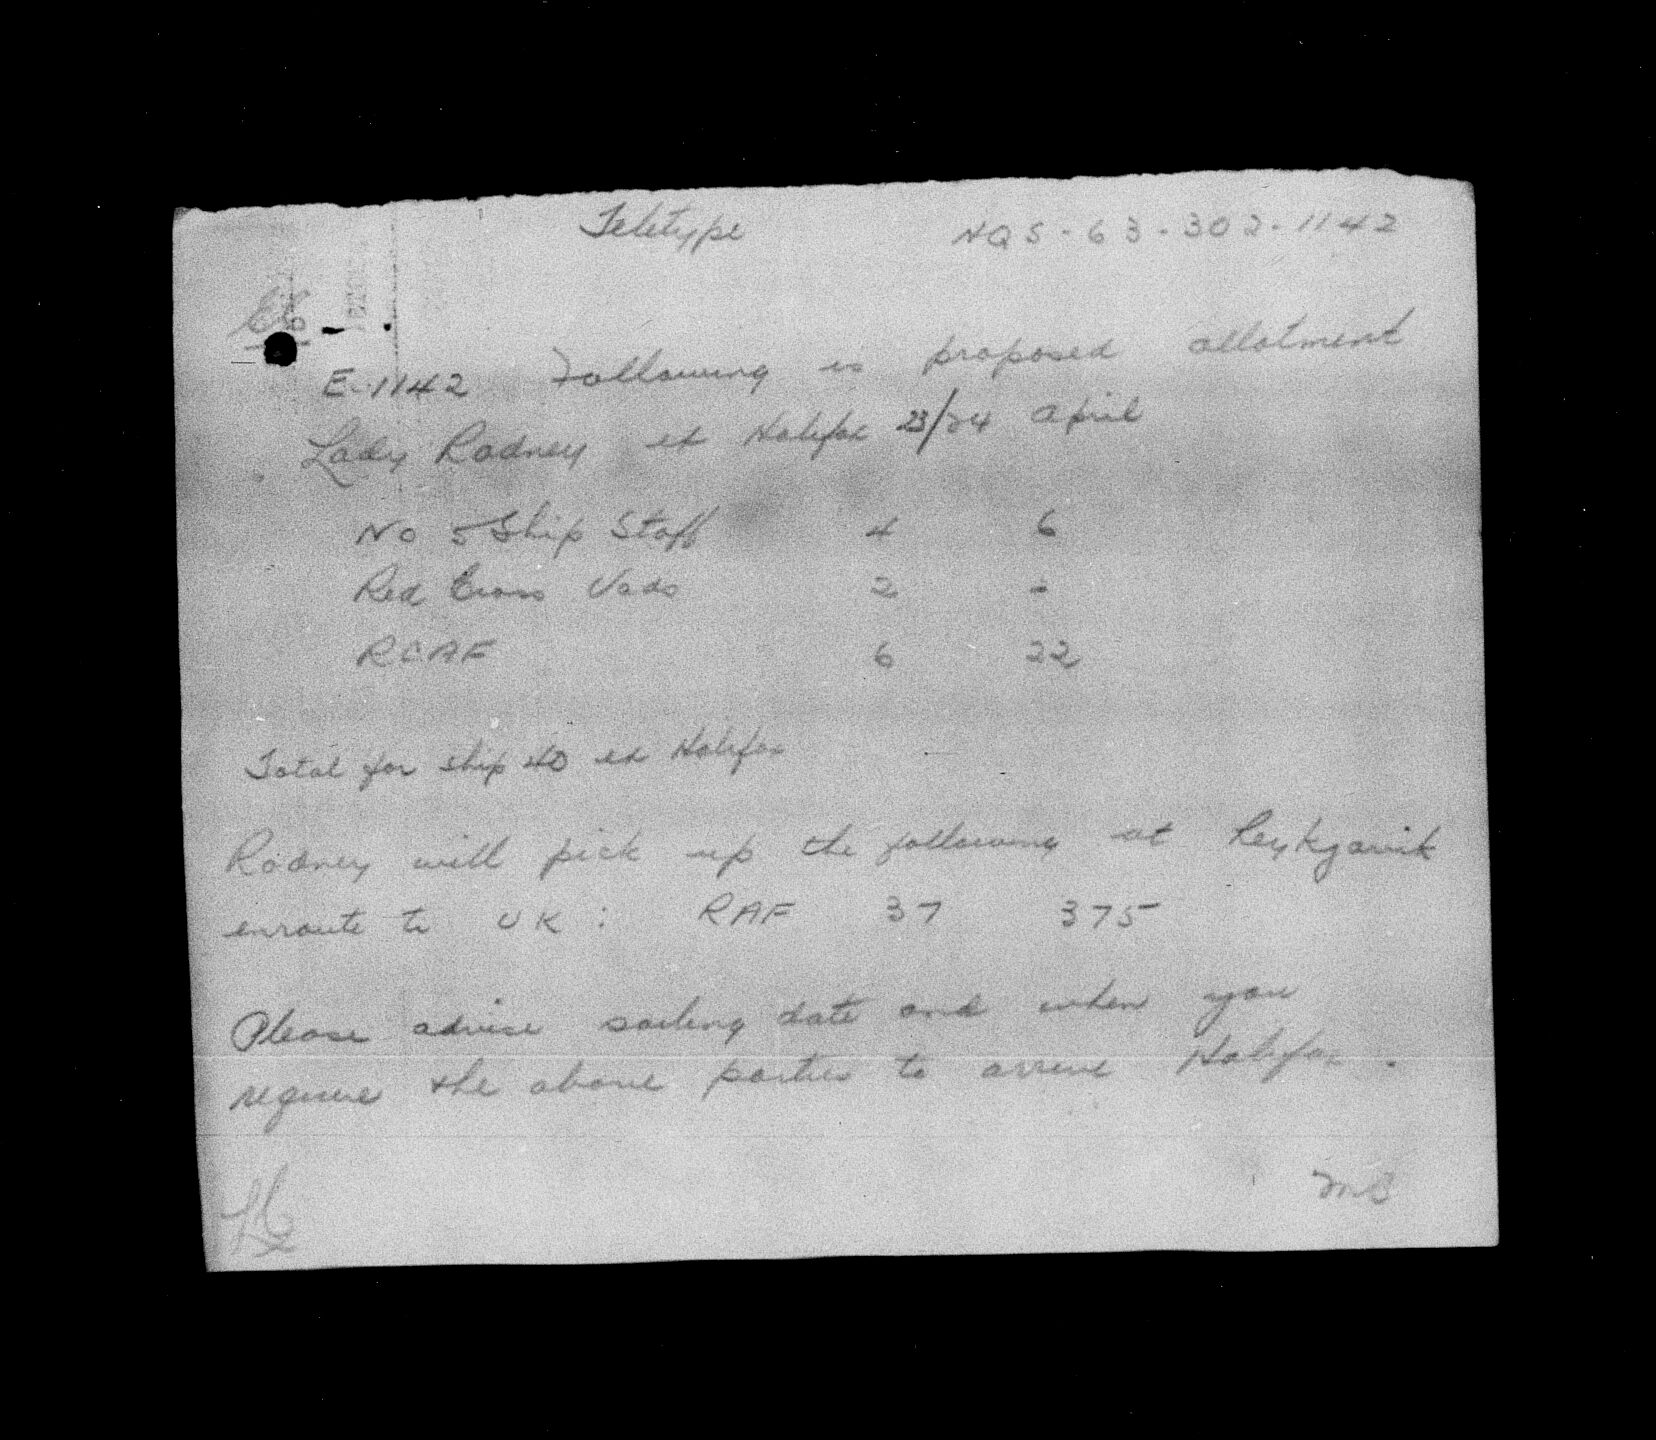 Teletype HQS-63-302-1142
E-1142 Following is proposed allotment
Lady Rodney ex Halifax 23/24 April
No 5 Ship Staff 4 6
Red Cross Vads 2 -
RCAF 6 22
Total for ship 40 ex Halifax
Rodney will pick up the following at Reykjavik
enroute to UK : RAF 37 375
Please advise sailing date and when you
require the above parties to arrive Halifax.
MB